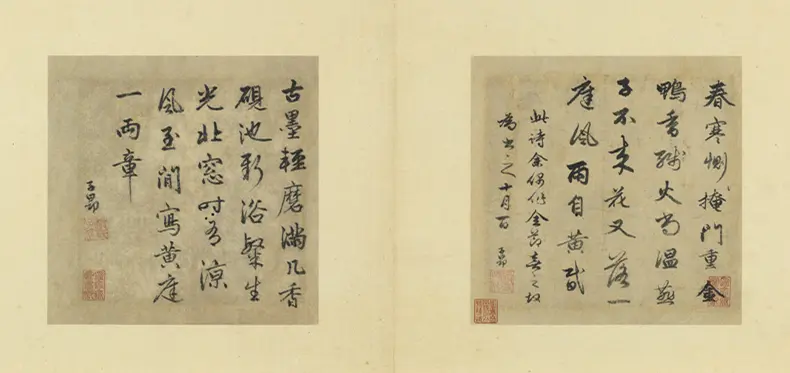 春寒惻〻掩門重金
鴨香殘火尚溫燕
子不來花又落一
庭風雨自黃昏
此詩余偶作喜之故
為書之十月
子昂
古墨輕磨滿几香
硯池新浴粲生
光北窻時有涼
風至閒寫黃庭
一兩章
子昂